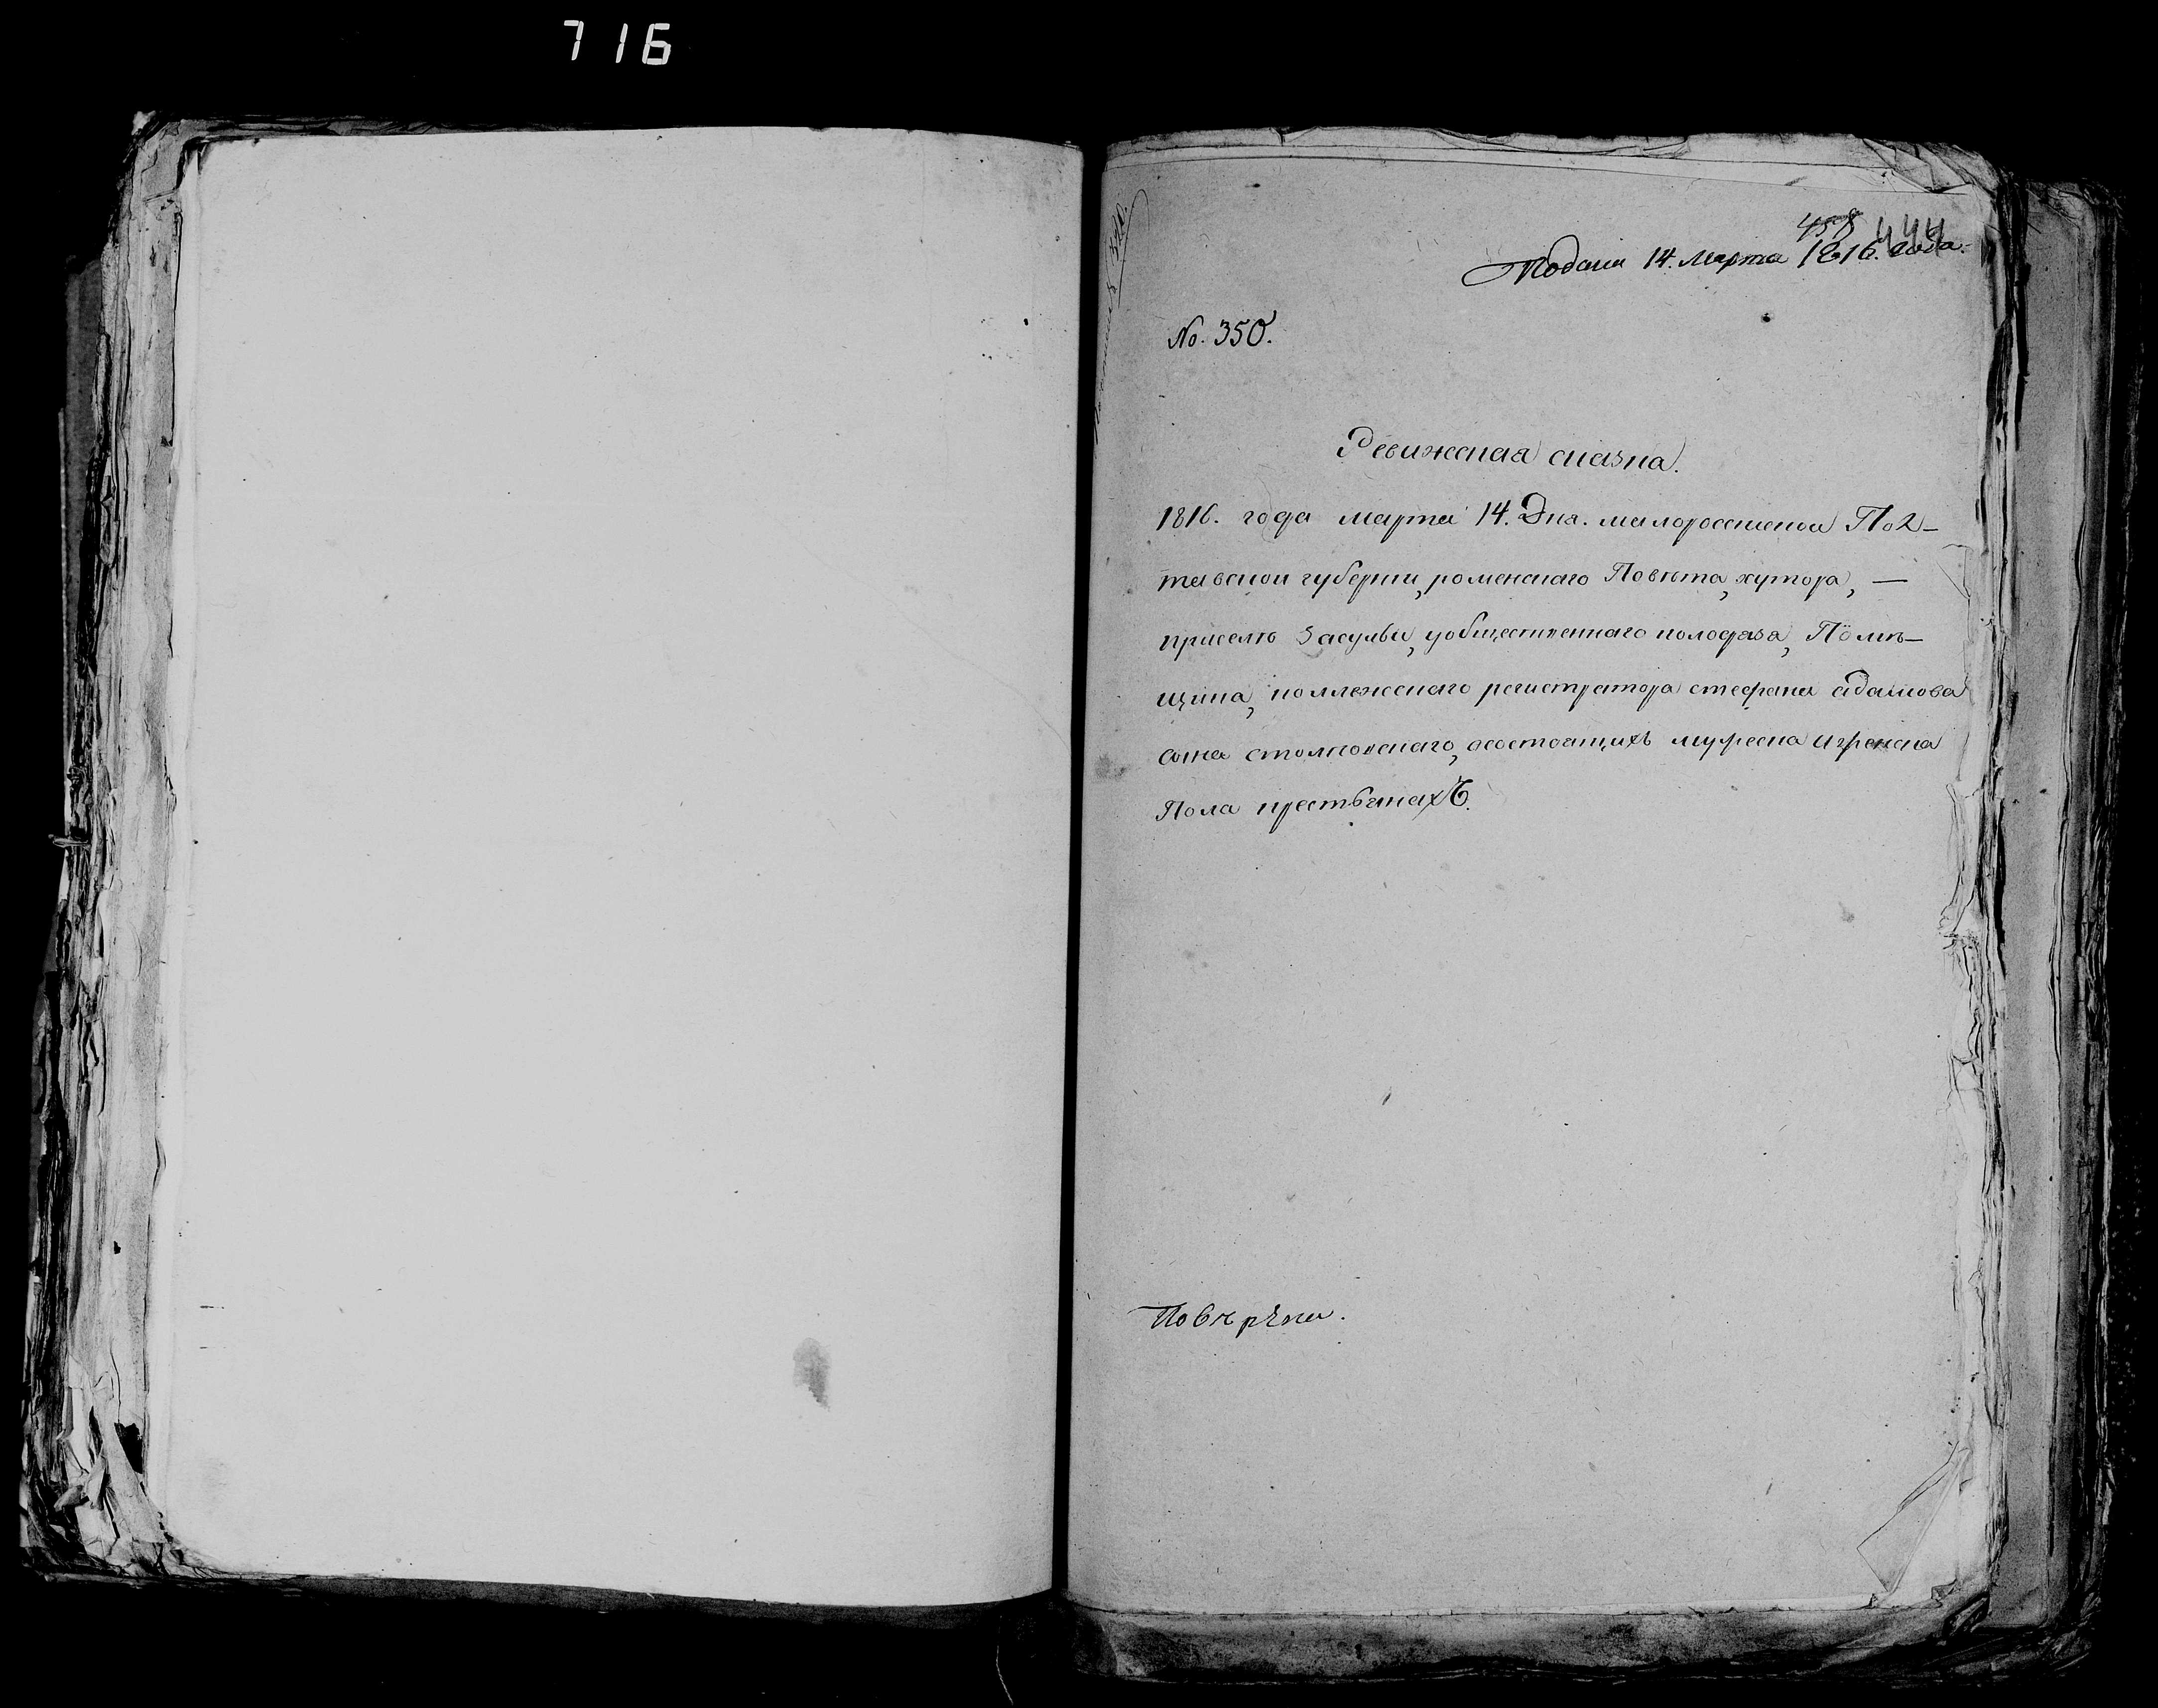 716
458 444
Подана 14. марта 1816. года.
No. 350.
Ревижская сказка.
1816. года марта 14. Дня. малоросииской Пол-
тавской губерни, роменскаго Повѣта, хутора, —
приселѣ Засульи, уобщественнаго колодязя, Помѣ-
щика, коллежскаго регистратора стефана адамова
сына столповскаго, осостоящихъ мужеска иженска
Пола крестьянахъ.
Повѣрена.